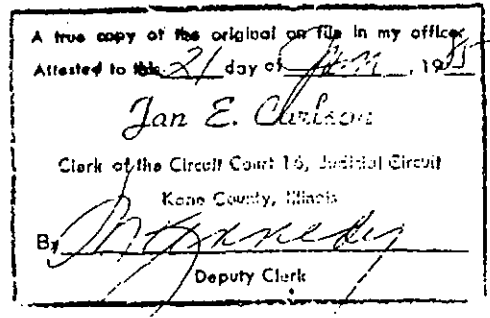 A true copy of the original on file in my office.
Attested to this 21 day of Jan, 1985
Jan E. Carlson
Clerk of the Circuit Court 16, Judicial Circuit
Kane County, Illinois
By
Deputy Clerk